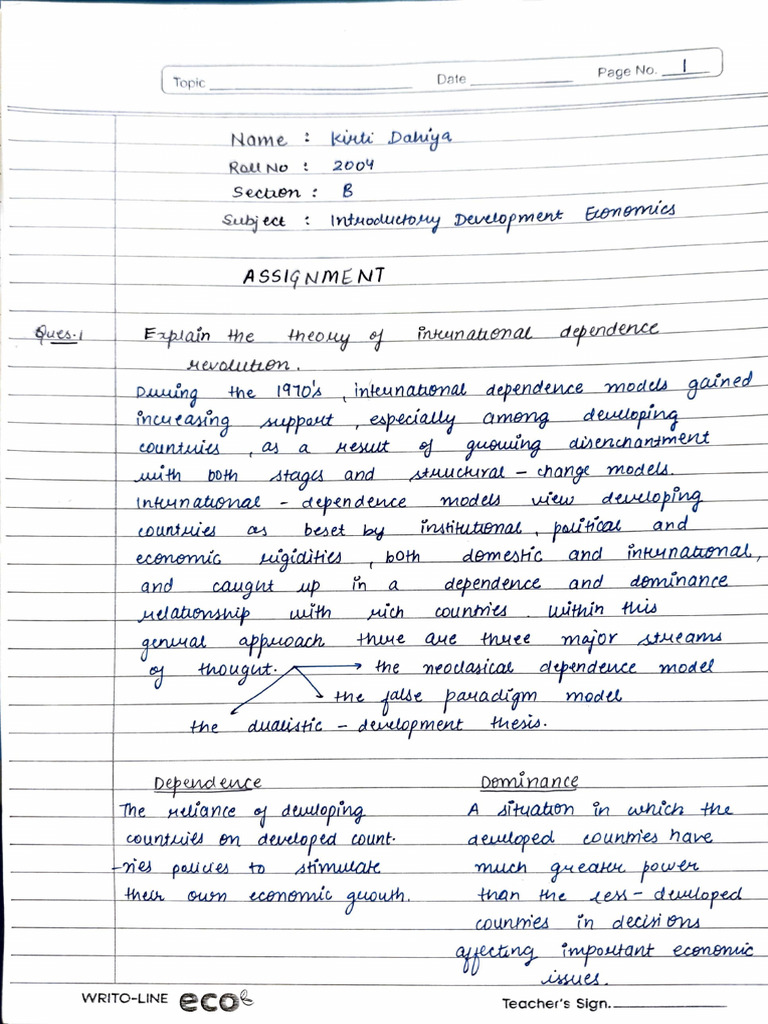 Topic
Date
Page No. 1
Name : Kirti Dahiya
Roll No : 2004
Section : B
Subject : Introductory Development Economics
ASSIGNMENT
Ques.1 Explain the theory of international dependence
revolution.
During the 1970's, international dependence models gained
increasing support, especially among developing
countries, as a result of growing disenchantment
with both stages and structural - change models.
International - dependence models view developing
countries as beset by institutional, political and
economic rigidities, both domestic and international,
and caught up in a dependence and dominance
relationship with rich countries. Within this
general approach there are three major streams
of thought. → the neoclasical dependence model
the false paradigm model
the dualistic - development thesis.
Dependence
The reliance of developing
countries on developed count-
-ries policies to stimulate
their own economic growth.
Dominance
A situation in which the
developed countries have
much greater power
than the less - developed
countries in decisions
affecting important economic
issues.
WRITO-LINE eco
Teacher's Sign.